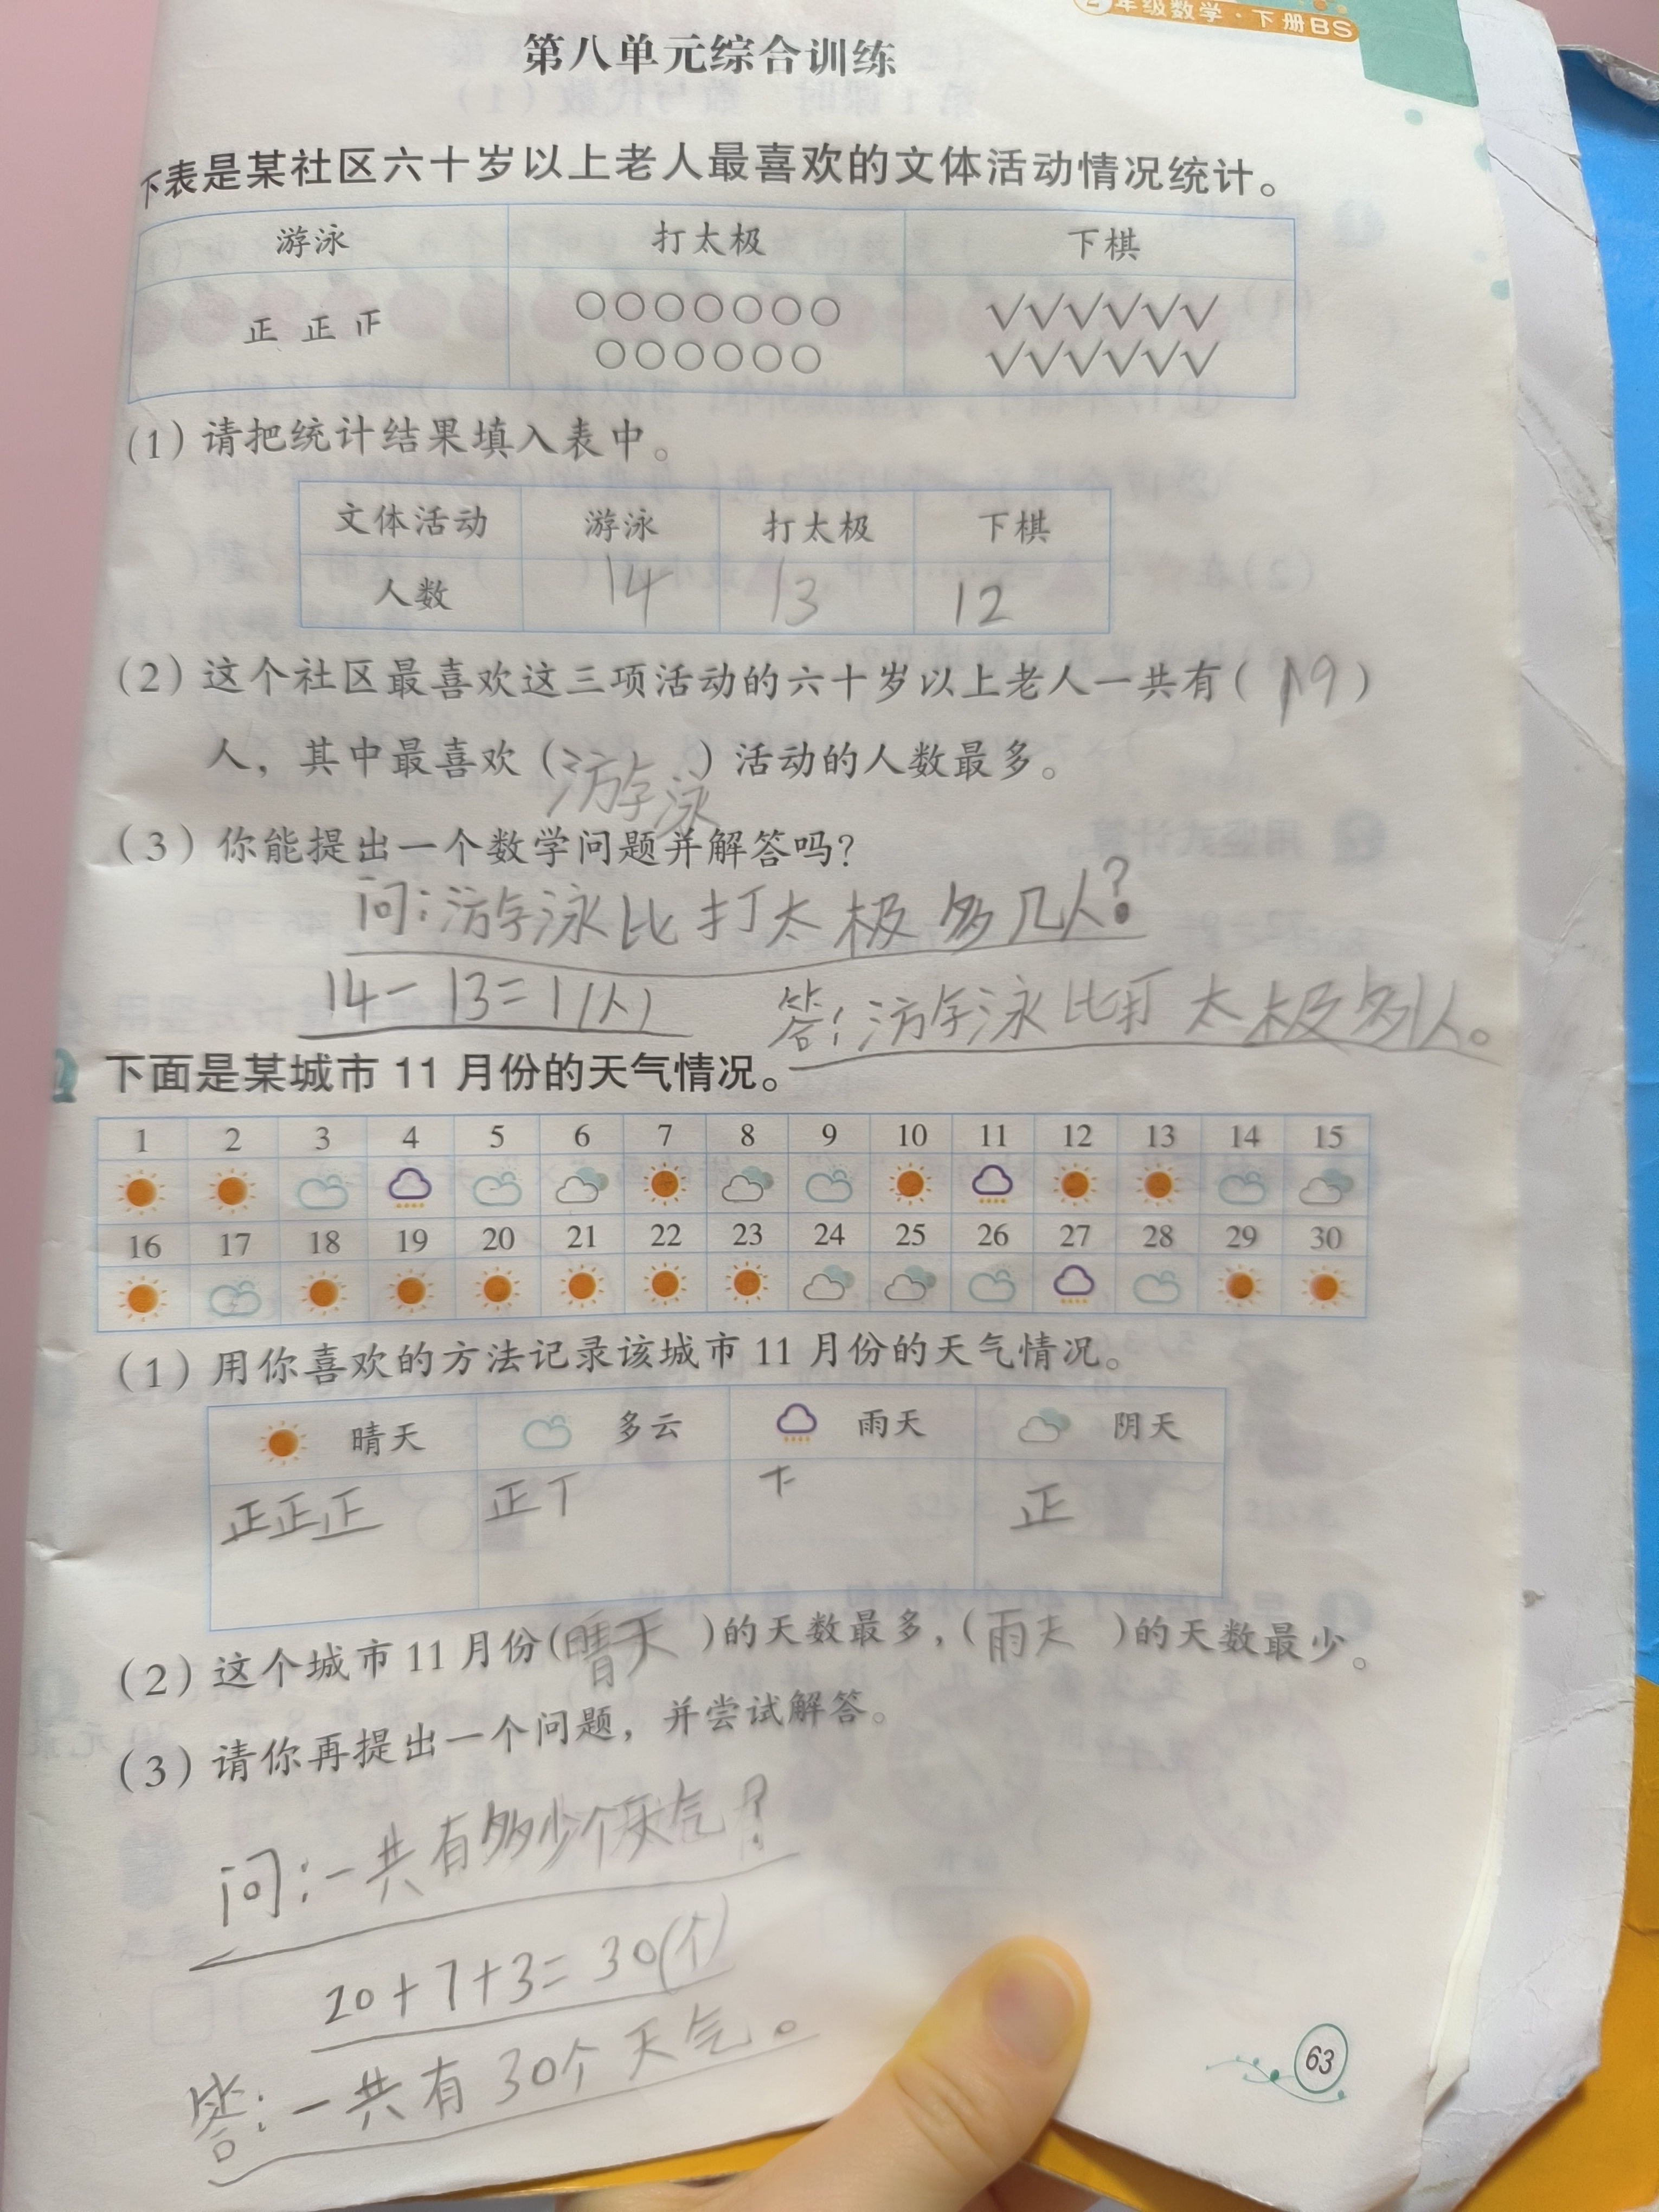 年级数学·下册BS
第八单元综合训练
下表是某社区六十岁以上老人最喜欢的文体活动情况统计。
游泳 打太极 下棋
正 正 𠀁
○○○○○○○ √√√√√√
○○○○○○ √√√√√√
(1)请把统计结果填入表中。
文体活动 游泳 打太极 下棋
人数 14 13 12
(2)这个社区最喜欢这三项活动的六十岁以上老人一共有( 19 )
人，其中最喜欢(游泳)活动的人数最多。
(3)你能提出一个数学问题并解答吗?
问:游泳比打太极多几人?
14-13=1(人) 答:游泳比打太极多1人。
下面是某城市 11 月份的天气情况。
1 2 3 4 5 6 7 8 9 10 11 12 13 14 15
16 17 18 19 20 21 22 23 24 25 26 27 28 29 30
(1)用你喜欢的方法记录该城市 11 月份的天气情况。
晴天 多云 雨天 阴天
正正正 正丅 下 正
(2)这个城市 11 月份(晴天)的天数最多,(雨天)的天数最少。
(3)请你再提出一个问题，并尝试解答。
问:一共有多少个天气?
20+7+3=30(个)
答:一共有30个天气。
63